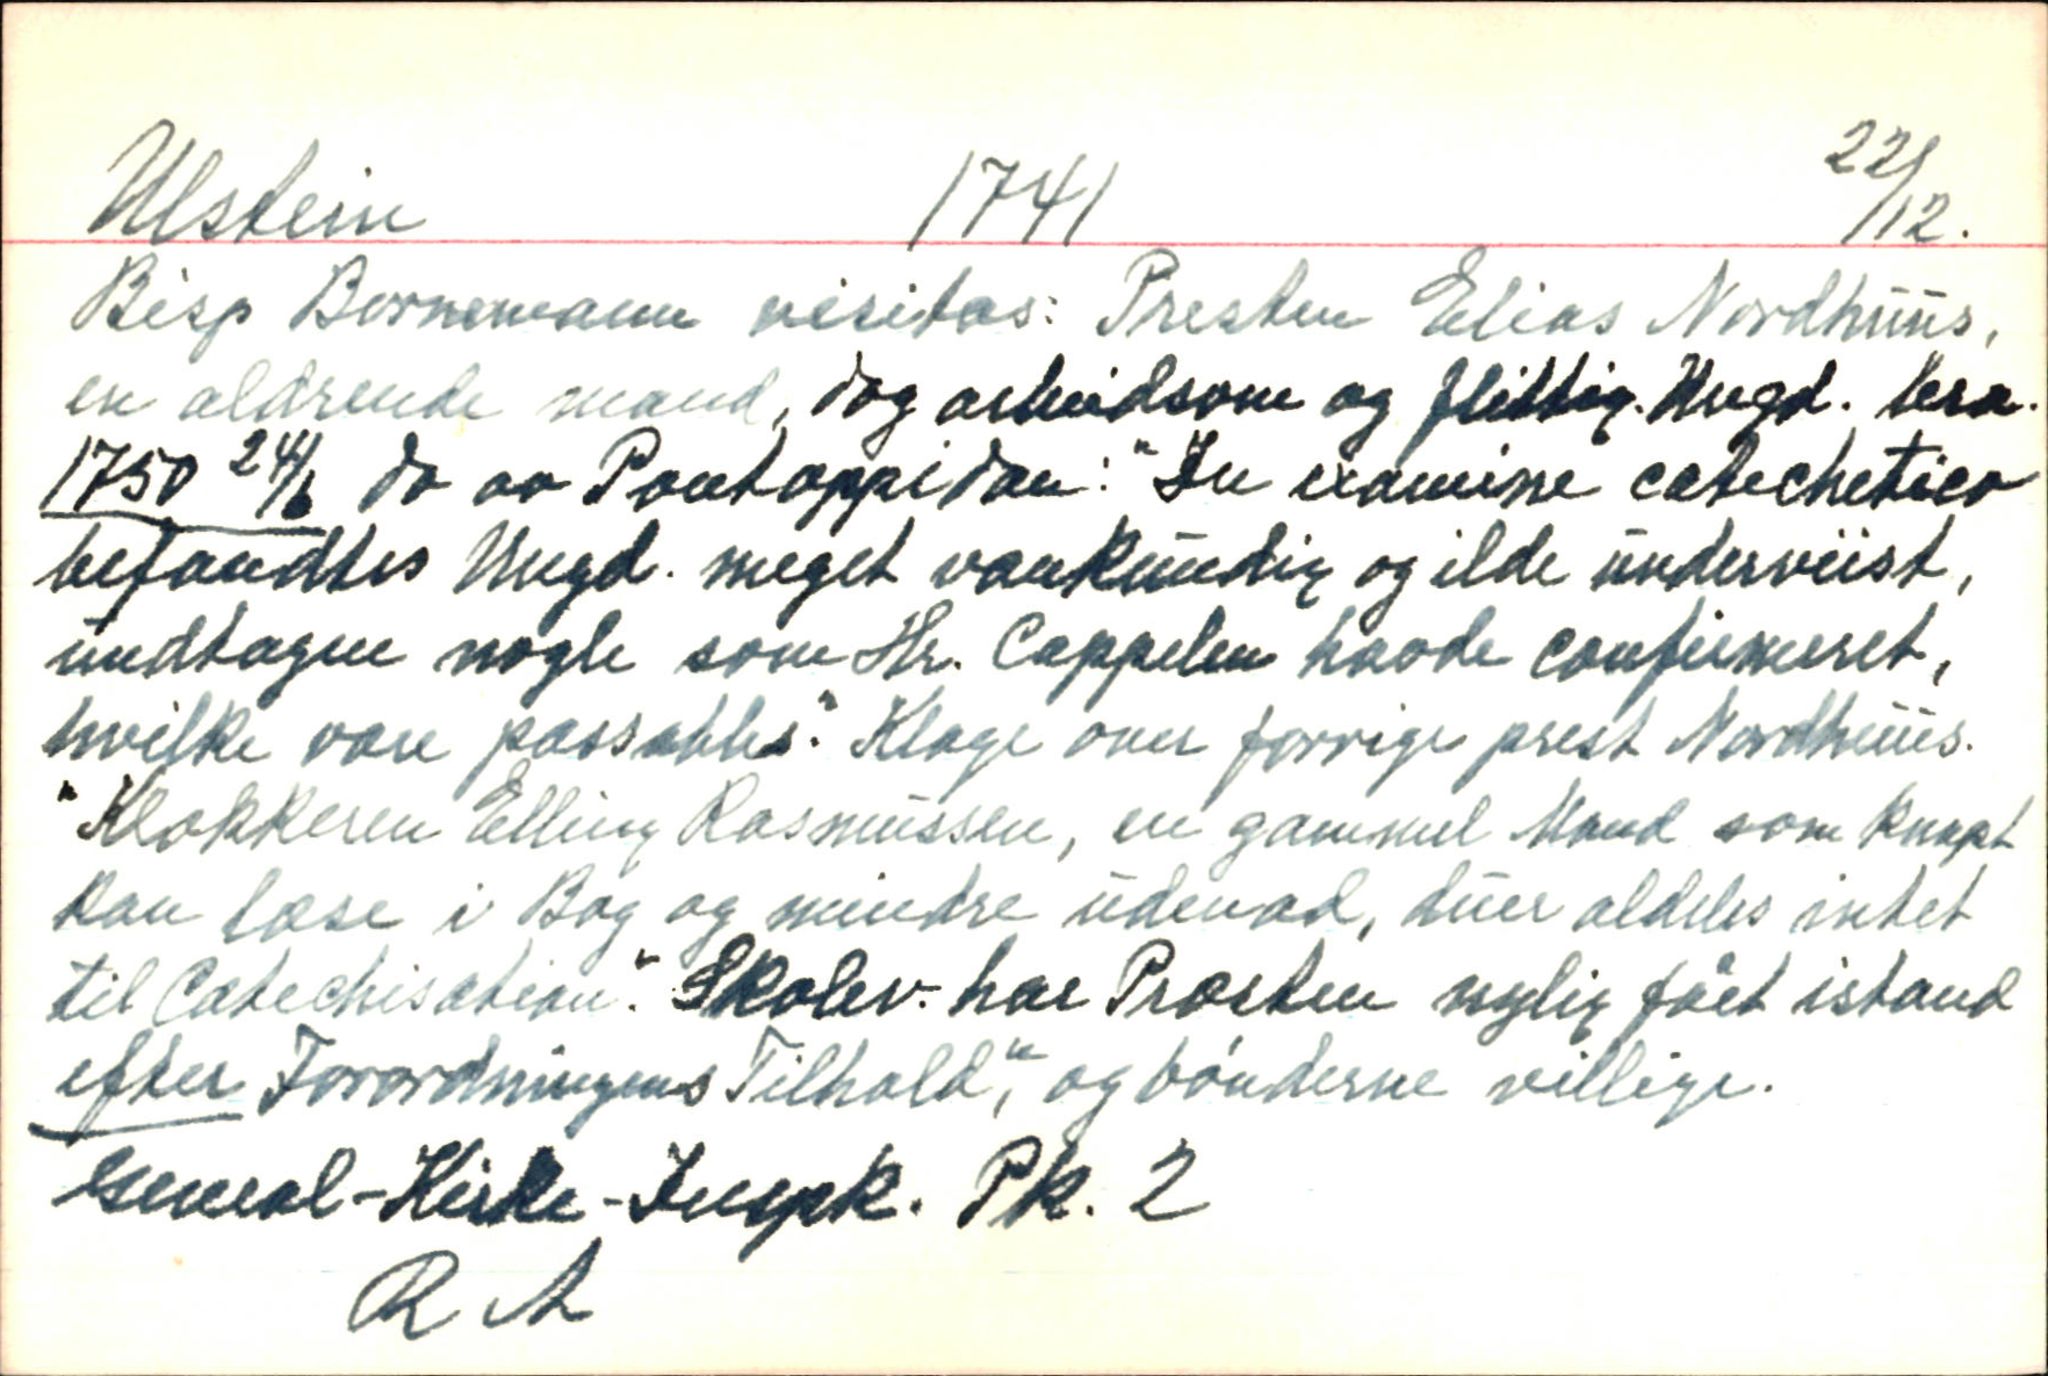 Ulstein 1741 22/12.
Bisp Bornemann visitas: Presten Elias Nordhuus,
en aldrende mand, dog arbeidsom og flittig. Ungd. bra.
1750 24/6 do av Pontoppidan: "In examine catechetico
befandtes Ungd. meget vankundig og ilde underviist,
undtagne nogle som Hr. Cappelen havde confirmeret,
hvilke vare passables." Klage over forrige prest Nordhuus.
"Klokkeren Elling Rasmussen, en gammel Mand som knapt
kan læse i Bog og mindre udenad, duer aldeles intet
til Catechisation". Skolev. har Præsten nylig fået istand
efter Forordningens Tilhold", og bønderne villige.
General-Kirke-Inspk. Pk. 2
R A